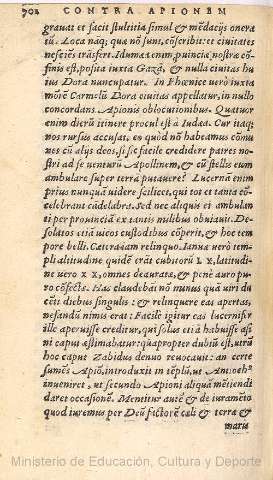 702 CONTRA APIONEM
grauat et facit stultitia simul & mēdacijs onera
tū. Loca naq; quæ nō sunt, cōscribit: et ciuitates
nesciēs trāsfert. Idumæa enim ꝓuinciæ nostræ cō⸗
finis est, posita iuxta Gazā, & nulla ciuitas hu
ius Dora nuncupatur. In Phœnice uerò iuxta
mōtē Carmelū Dora ciuitas appellatur, in nullo
concordans Apionis oblocutionibus. Quatuor
enim dierū itinere procul est à Iudæa. Cur itaq;
nos rursus accusat, eo quòd nō habeamus cōmu
nes cū alijs deos, si sic facilè credidere patres no⸗
stri ad se uenturū Apollinem, & cū stellis eum
ambulare super terrā putauere? Lucernā enim
prius nunquā uidere scilicet, qui tot et tanta cō⸗
celebrant cādelabra. Sed nec aliquis ei ambulan
ti per prouinciā ex tantis milibus obuiauit. De⸗
solatos etiā uicos custodibus cōperit, & hoc tem
pore belli. Cætera iam relinquo. Ianua uerò tem⸗
pli altitudine quidē erat cubitorū LX, latitudi⸗
ne uero XX, omnes deauratæ, & penè auro pu⸗
ro cōfectæ. Has claudebāt nō minus quā uiri du
cēti diebus singulis: & relinquere eas apertas,
nefandū nimis erat: Facilè igitur eas lucernifer
ille aperuisse creditur, qui solus etiā habuisse asi
ni caput æstimabatur: quapropter dubiū est, utrū
hoc caput Zabidus denuo reuocauit: an certe
sumēs Apiō, introduxit in tēplū, ut Antioch9
inueniret, ut secundo Apioni aliqua mētiendi
daret occasionem. Mentitur autē & de iuramēto
quod iuremus per Deū factorē cœli & terræ &
maris
Ministerio de Educación, Cultura y Deporte